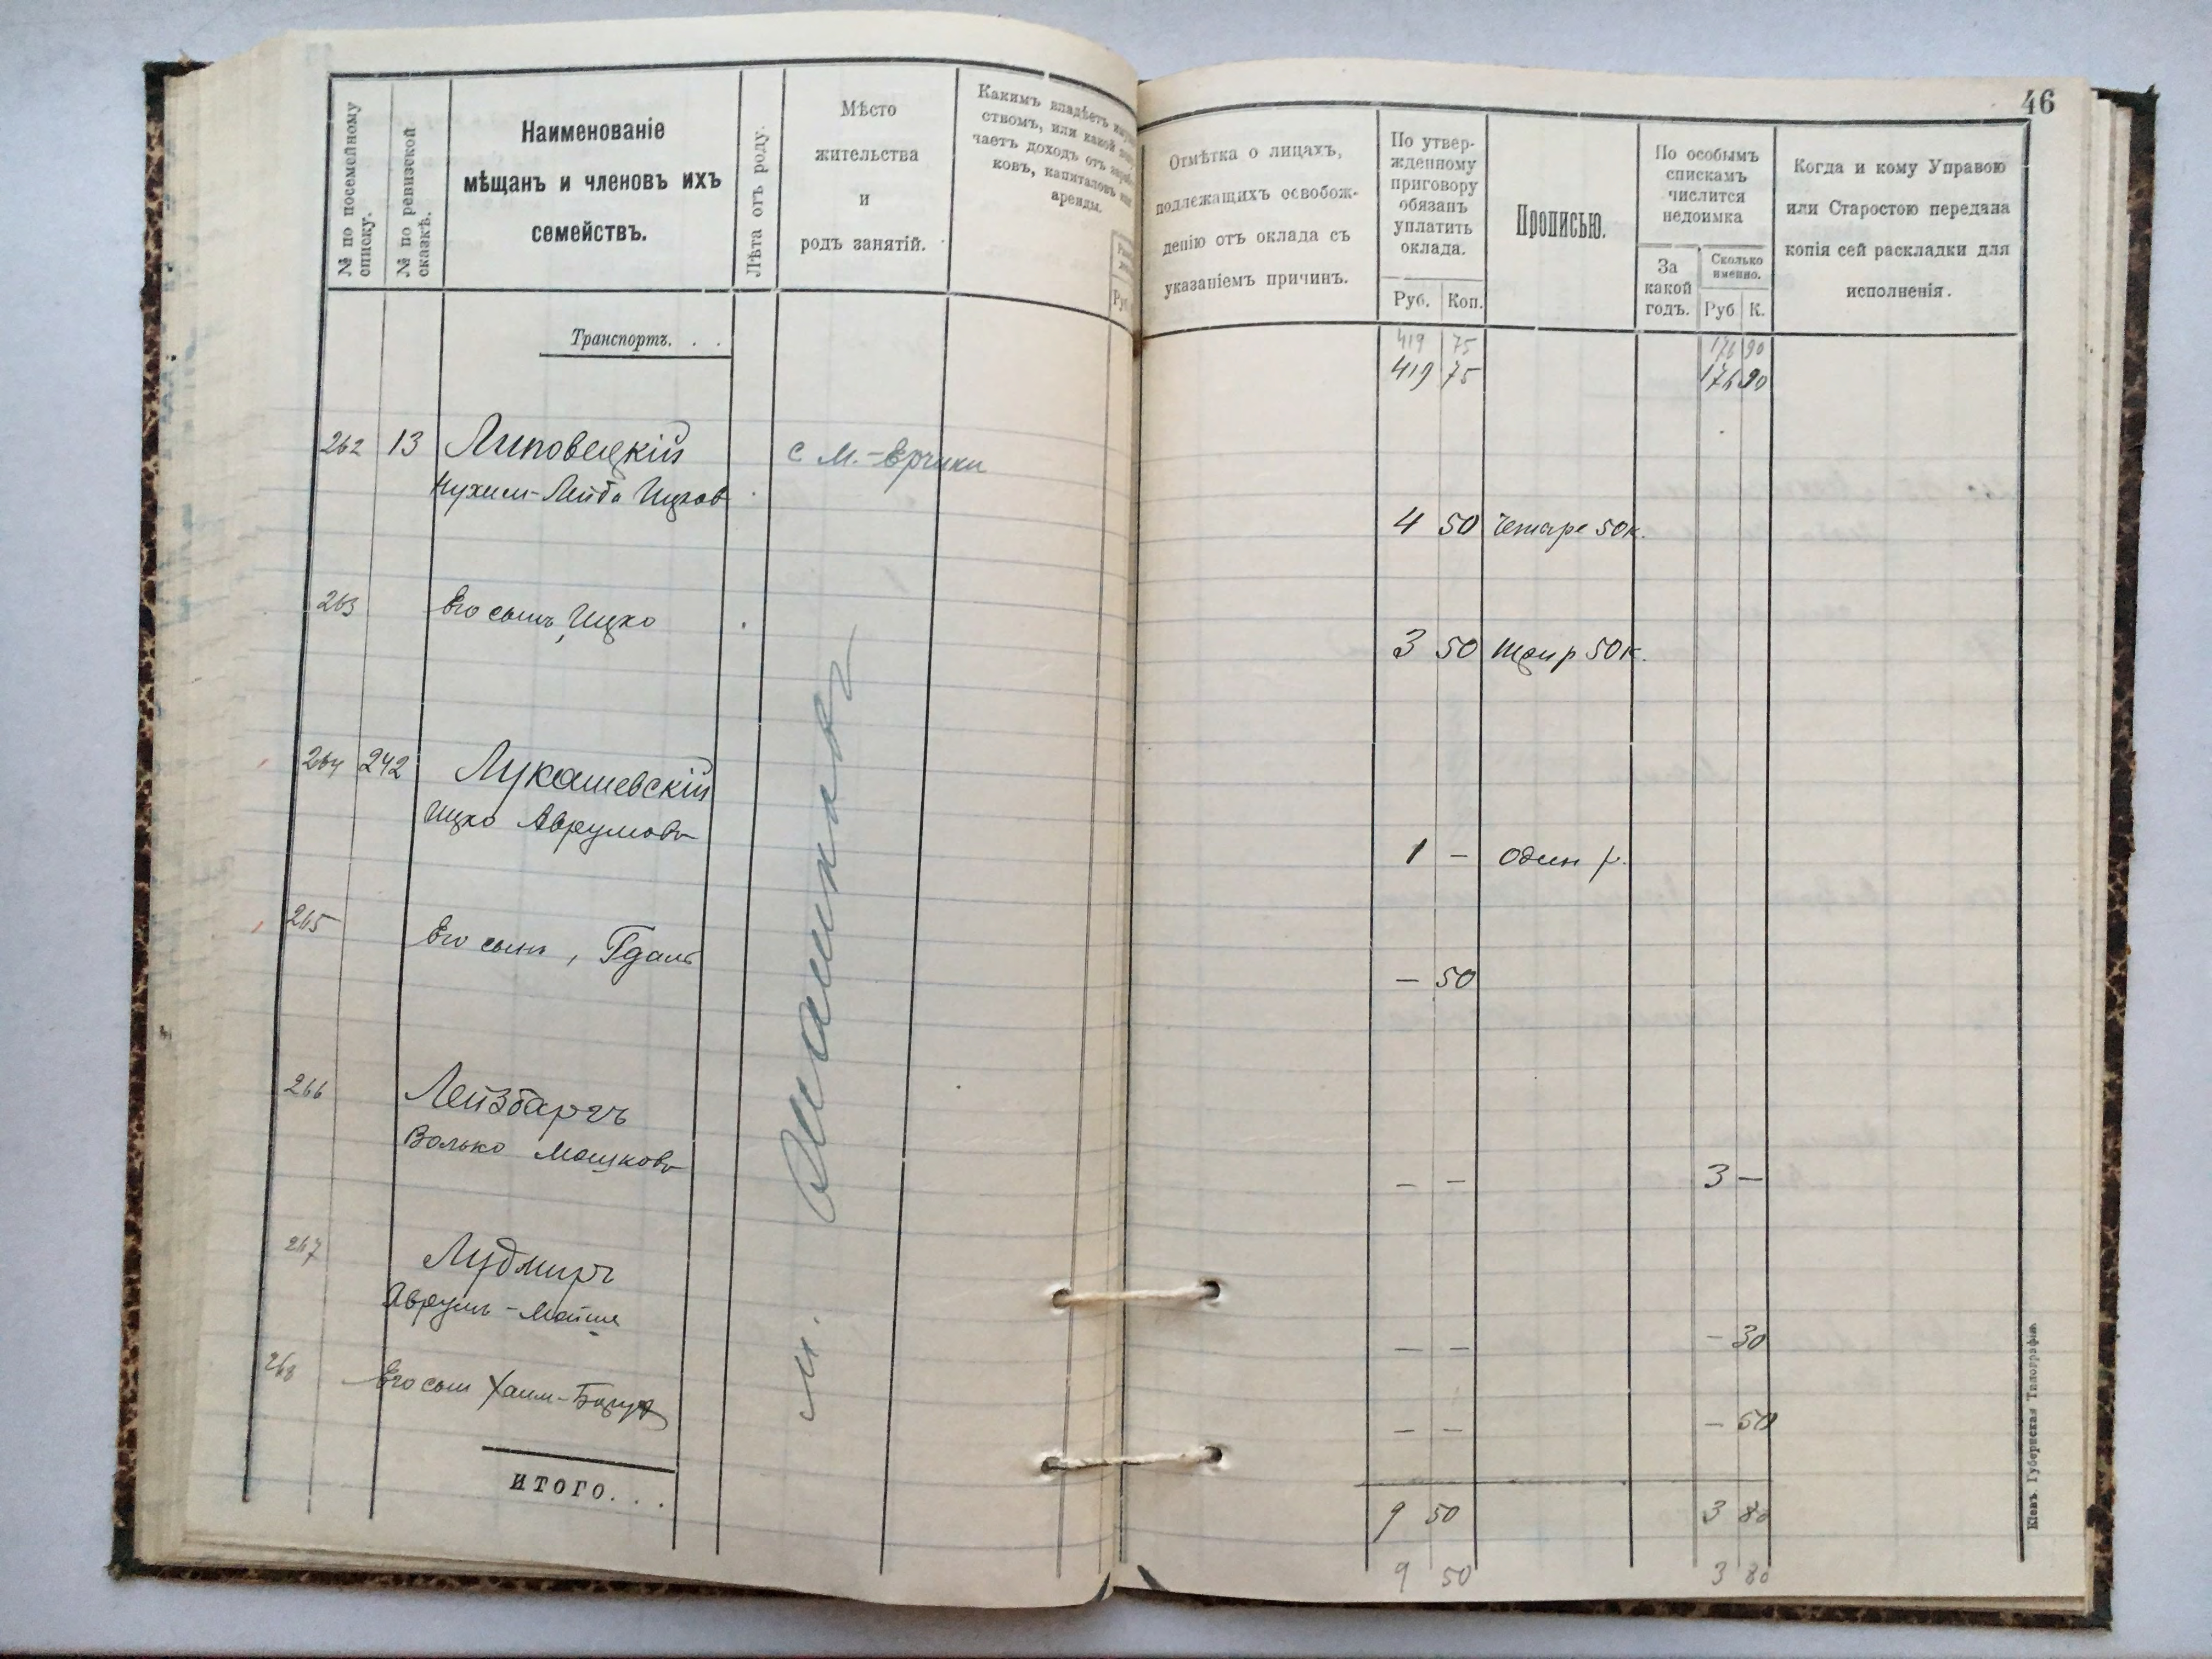 46
№ по посемейному списку.
№ по ревизской сказкѣ.
Наименованіе
мѣщанъ и членовъ ихъ
семействъ.
Лѣта отъ роду.
Мѣсто
жительства
и
родъ занятій.
Какимъ владѣетъ
ствомъ, или какой
чаетъ доходъ отъ
ковъ, капиталовъ
аренды.
Руб
Отмѣтка о лицахъ,
подлежащихъ освобож-
денію отъ оклада съ
указаніемъ причинъ.
По утвер-
жденному
приговору
обязанъ
уплатить
оклада.
Руб. Коп.
Прописью.
По особымъ
спискамъ
числится
недоимка
За
какой
годъ.
Сколько
именно.
Руб К.
Когда и кому Управою
или Старостою передана
копія сей раскладки для
исполненія.
Транспортъ. . .
419 75 176 90
419 75 176 90
262 13 Липовецкій с М.-Ерчики
Нухим-Лейба Ицков
4 50 Четыре 50к.
263 Его сынъ, Ицко
3 50 три р 50к.
264 242 Лукашевскій
Ицко Аврумовъ
1 — один р.
265 Его сынъ, Гдаль
— 50
266 Лейзбаргъ
Волько Мошковъ
— — 3 —
267 Лудмиръ
Аврумъ-Мойше
— — — 30
268 Его сын Хаим-Борух
— — — 50
м.
ИТОГО. . .
9 50 3 80
9 50 3 80
Кіевъ. Губернская Типографія.